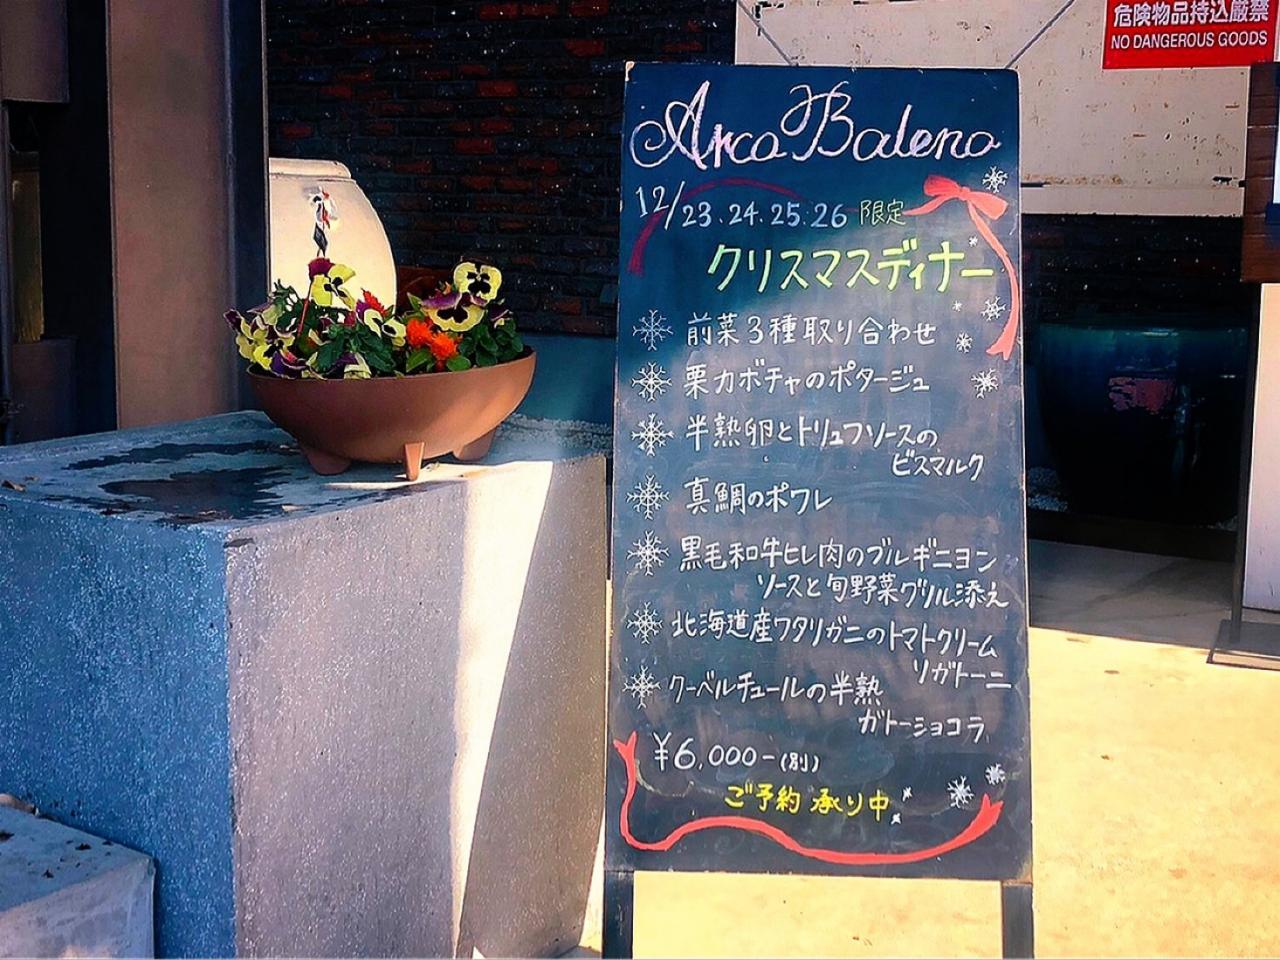 危険物品持込厳禁
NO DANGEROUS GOODS
Arca Balena
12/23.24.25.26 限定
クリスマスディナー
前菜3種取り合わせ
栗カボチャのポタージュ
半熟卵とトリュフソースの
ビスマルク
真鯛のポワレ
黒毛和牛ヒレ肉のブルギニヨン
ソースと旬野菜グリル添え
北海道産ワタリガニのトマトクリーム
リガトーニ
クーベルチュールの半熟
ガトーショコラ
¥6,000-(別)
ご予約承り中